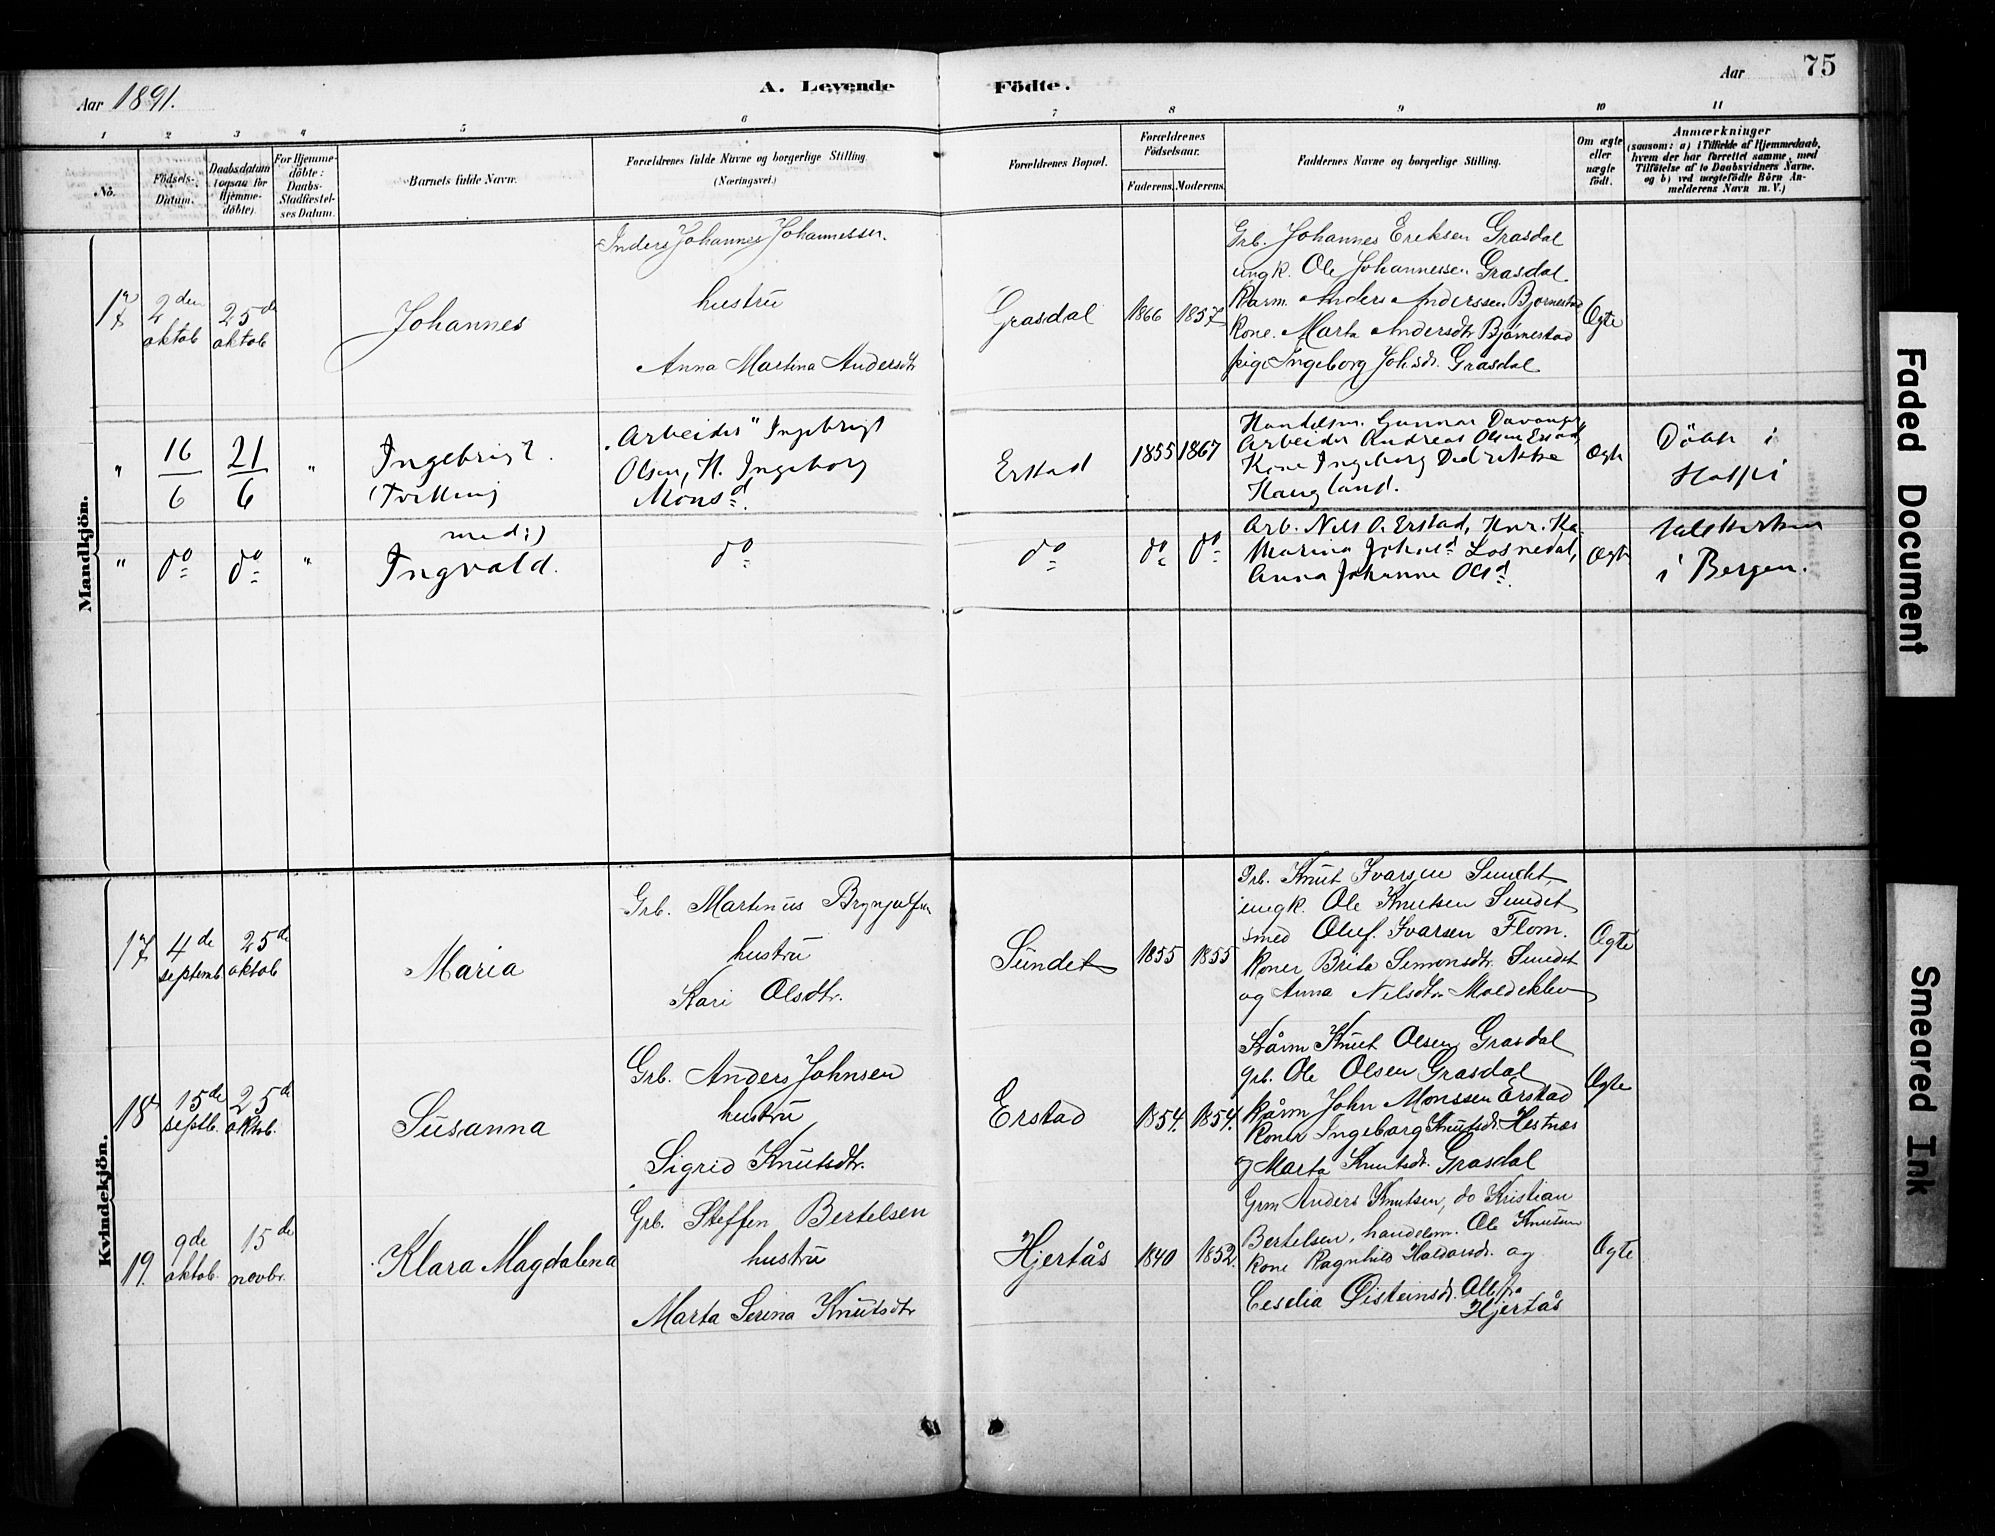 75
Aar 1891.
A. Levende Födte.
Aar
1 2 3 4 5 6 7 8 9 10 11
No.
Födsels-Datum.
Daabsdatum (ogsaa for Hjemme-döbte)
For Hjemme-döbte: Daabs-Stadfæstel-ses Datum.
Barnets fulde Navn.
Forældrenes fulde Navne og borgerlige Stilling
(Næringsvei.)
Forældrenes Bopæl.
Forældrenes Födselsaar.
Faderens. Moderens.
Faddernes Navne og borgerlige Stilling.
Om ægte eller uægte født.
Anmærkninger
(saasom: a) i Tilfælde af Hjemmedaab,
hvem der har forrettet samme, med
Tilföielse af to Daabsvidners Navne.
og b) ved uægtefödte Börn An-
melderens Navn m. V.)
Mandkjön.
17
2den oktob
25de oktob
Johannes
Anders Johannes Johannessen.
hustru
Anna Martina Andersdtr
Grasdal
1866
1857
Grb. Johannes Eriksen Grasdal
ungk. Ole Johannessen Grasdal
Kårm. Anders Anderssen Bjørnestad
Kone. Marta Andersdtr Bjørnestad
pige Ingeborg Johsdr. Grasdal
Ægte
"
16/6
21/6
"
Ingebrigt.
(Tvilling
"Arbeider" Ingebrigt
Olsen, H. Ingeborg
Monsd.
Erstad
1855
1867
Handelsm. Gunnar Davanger
Arbeider Andreas Olsen Erstad
Kone Ingeborg Dedrikke
Haugland.
Ægte
Döbt i
"
do
do
"
med:)
Ingvald.
do
do
do
do
Arb. Nils O. Erstad,
Marina Johsd. Losnedal,
Anna Johanne Olsd.
Ægte
i Bergen.
Kvindekjön.
17
4de septemb
25de oktob
Maria
Grb. Martinus Brynjulfsen
hustru
Kari Olsdtr.
Sundet
1855
1855
Grb. Knut Ivarsen Sundet,
ungk. Ole Knutsen Sundet
smed Oluf Ivarsen Flom.
Koner Brita Simonsdtr. Sundet
og Anna Nilsdtr Moldeklev
Ægte
18
15de septb.
25de oktob.
Susanna
Grb. Anders Johnsen
hustru
Sigrid Knutsdtr.
Erstad
1854.
1854.
Kårm Knut Olsen Grasdal
grb. Ole Olsen Grasdal
Kårm John Monssen Erstad
Koner Ingeborg Knutsdr Hestnes
og Marta Knutsdr. Grasdal
Ægte
19.
9de oktob.
15de novbr.
Klara Magdalena
Grb. Steffen Bertelsen
hustru
Marta Serina Knutsdtr
Hjertås
1840
1852.
Grm Anders Knutsen, do Kristian
Bertelsen, handelsm. Ole Knutsen
Kone Ragnhild Haldorsdr. og
Ceselia Øisteinsdr. Alle fra
Hjertås
Ægte
Faded Document
Smeared Ink